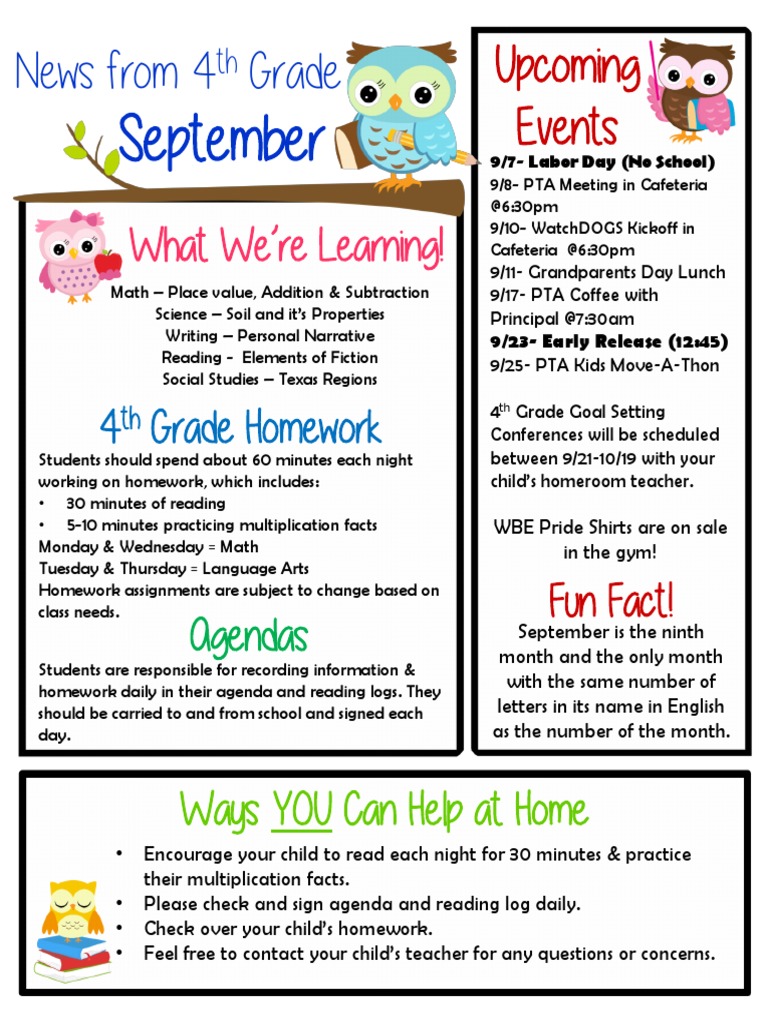 News from 4th Grade
September
What We're Learning!
Math – Place value, Addition & Subtraction
Science – Soil and it's Properties
Writing – Personal Narrative
Reading - Elements of Fiction
Social Studies – Texas Regions
4th Grade Homework
Students should spend about 60 minutes each night
working on homework, which includes:
• 30 minutes of reading
• 5-10 minutes practicing multiplication facts
Monday & Wednesday = Math
Tuesday & Thursday = Language Arts
Homework assignments are subject to change based on
class needs.
Agendas
Students are responsible for recording information &
homework daily in their agenda and reading logs. They
should be carried to and from school and signed each
day.
Upcoming
Events
9/7- Labor Day (No School)
9/8- PTA Meeting in Cafeteria
@6:30pm
9/10- WatchDOGS Kickoff in
Cafeteria @6:30pm
9/11- Grandparents Day Lunch
9/17- PTA Coffee with
Principal @7:30am
9/23- Early Release (12:45)
9/25- PTA Kids Move-A-Thon
4th Grade Goal Setting
Conferences will be scheduled
between 9/21-10/19 with your
child's homeroom teacher.
WBE Pride Shirts are on sale
in the gym!
Fun Fact!
September is the ninth
month and the only month
with the same number of
letters in its name in English
as the number of the month.
Ways YOU Can Help at Home
• Encourage your child to read each night for 30 minutes & practice
their multiplication facts.
• Please check and sign agenda and reading log daily.
• Check over your child's homework.
• Feel free to contact your child's teacher for any questions or concerns.